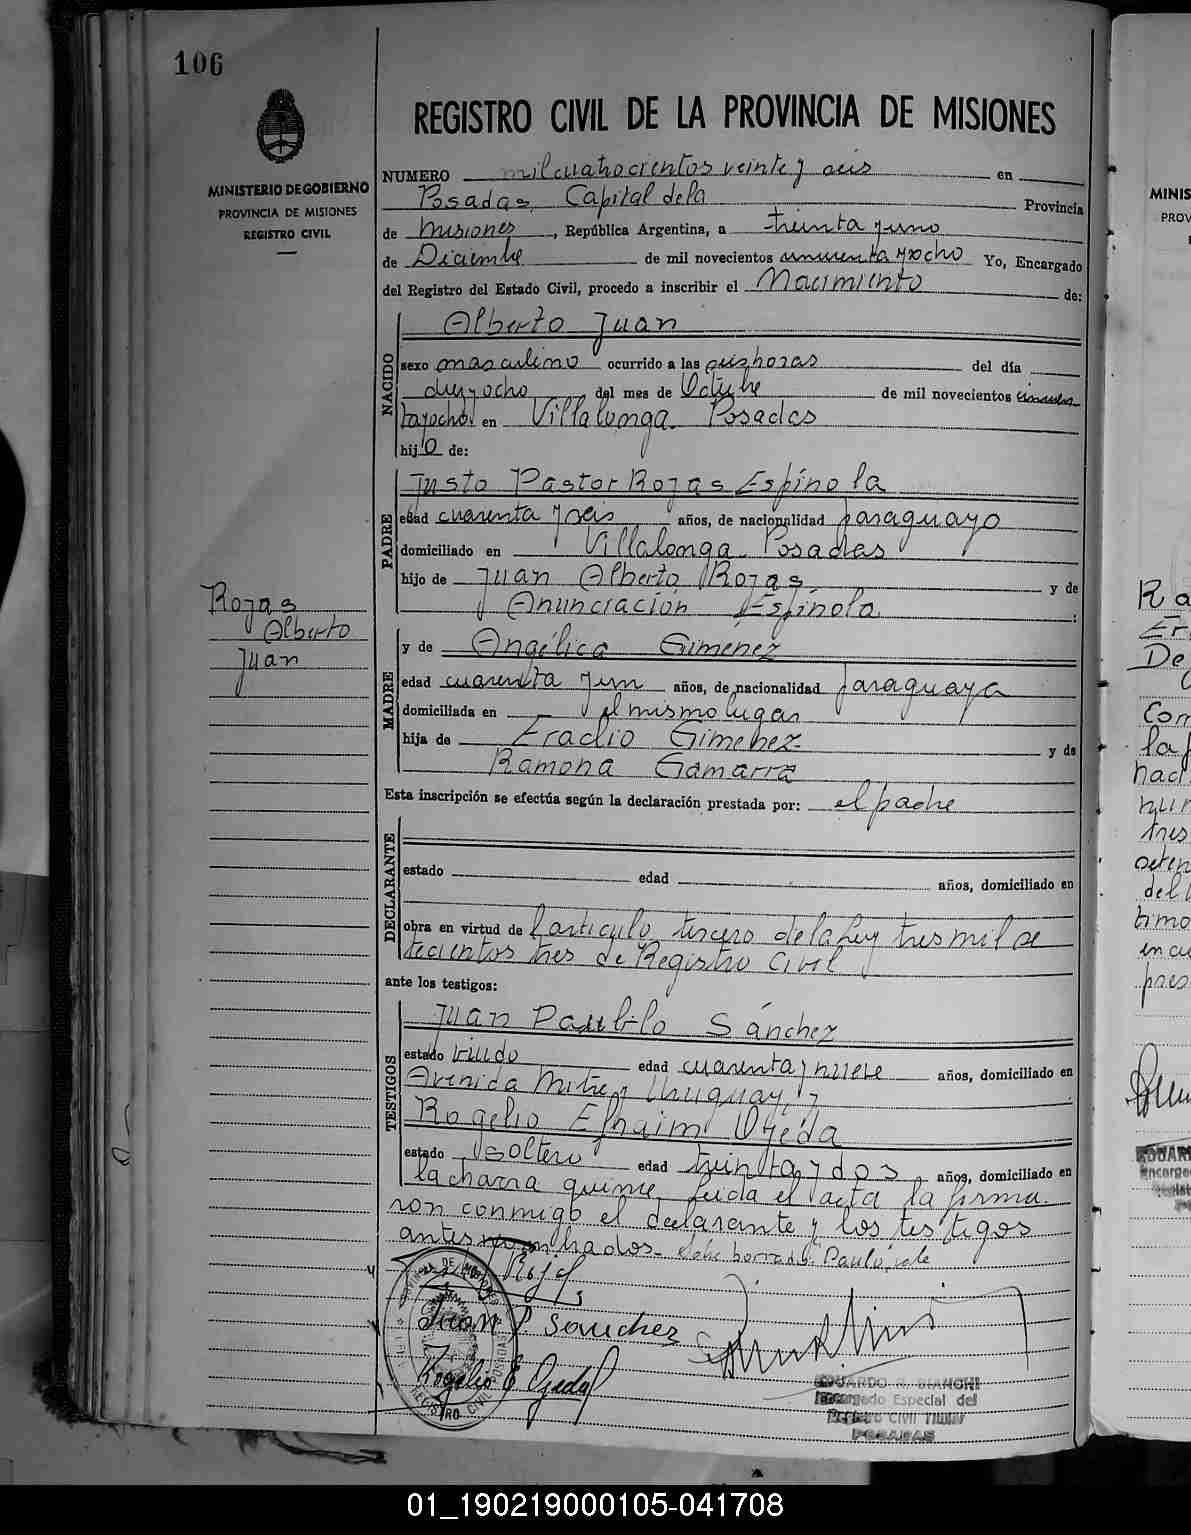 106
MINISTERIO DE GOBIERNO
PROVINCIA DE MISIONES
REGISTRO CIVIL
REGISTRO CIVIL DE LA PROVINCIA DE MISIONES
NUMERO mil cuatrocientos veinte y seis en
Posadas, Capital de la Provincia
de Misiones, República Argentina, a treinta y uno
de Diciembre de mil novecientos cincuenta y ocho Yo, Encargado
del Registro del Estado Civil, procedo a inscribir el Nacimiento de:
NACIDO
Alberto Juan
sexo masculino ocurrido a las seis horas del día
diez y ocho del mes de Octubre de mil novecientos cincuen
ta y ocho en Villalonga - Posadas
hijo de:
PADRE
Justo Pastor Rojas Espínola
edad cuarenta y seis años, de nacionalidad paraguayo
domiciliado en Villalonga - Posadas
hijo de Juan Alberto Rojas y de
Anunciación Espínola :
Rojas
Alberto
Juan
MADRE
y de Angélica Gimenez
edad cuarenta y un años, de nacionalidad paraguaya
domiciliada en el mismo lugar
hija de Eradio Gimenez - y de
Ramona Gamarra
Esta inscripción se efectúa según la declaración prestada por: el padre
DECLARANTE
estado edad años, domiciliado en
obra en virtud de l artículo tercero de la Ley tres mil se
tecientos tres de Registro Civil
ante los testigos:
TESTIGOS
Juan Paulo Sánchez
estado viudo edad cuarenta y nueve años, domiciliado en
Avenida Mitre y Uruguay, y
Rogelio Efraim Ojeda
estado soltero edad treinta y dos años, domiciliado en
la chacra quince, leida el acta la firma
ron conmigo el declarante y los testigos
antes nombrados - Sobre borrado: Paulo, vale
Rojas
Juan P Sanchez
Rogelio E Ojeda
PROVINCIA DE MISIONES
REGISTRO CIVIL POSADAS
EDUARDO R. BIANCHI
Encargado Especial del
Registro Civil
POSADAS
MINIS
PROV
Ra
Er
De
Com
la
naci
num
tres
del
timo
en cu
EDUAR
Encargo
01_190219000105-041708